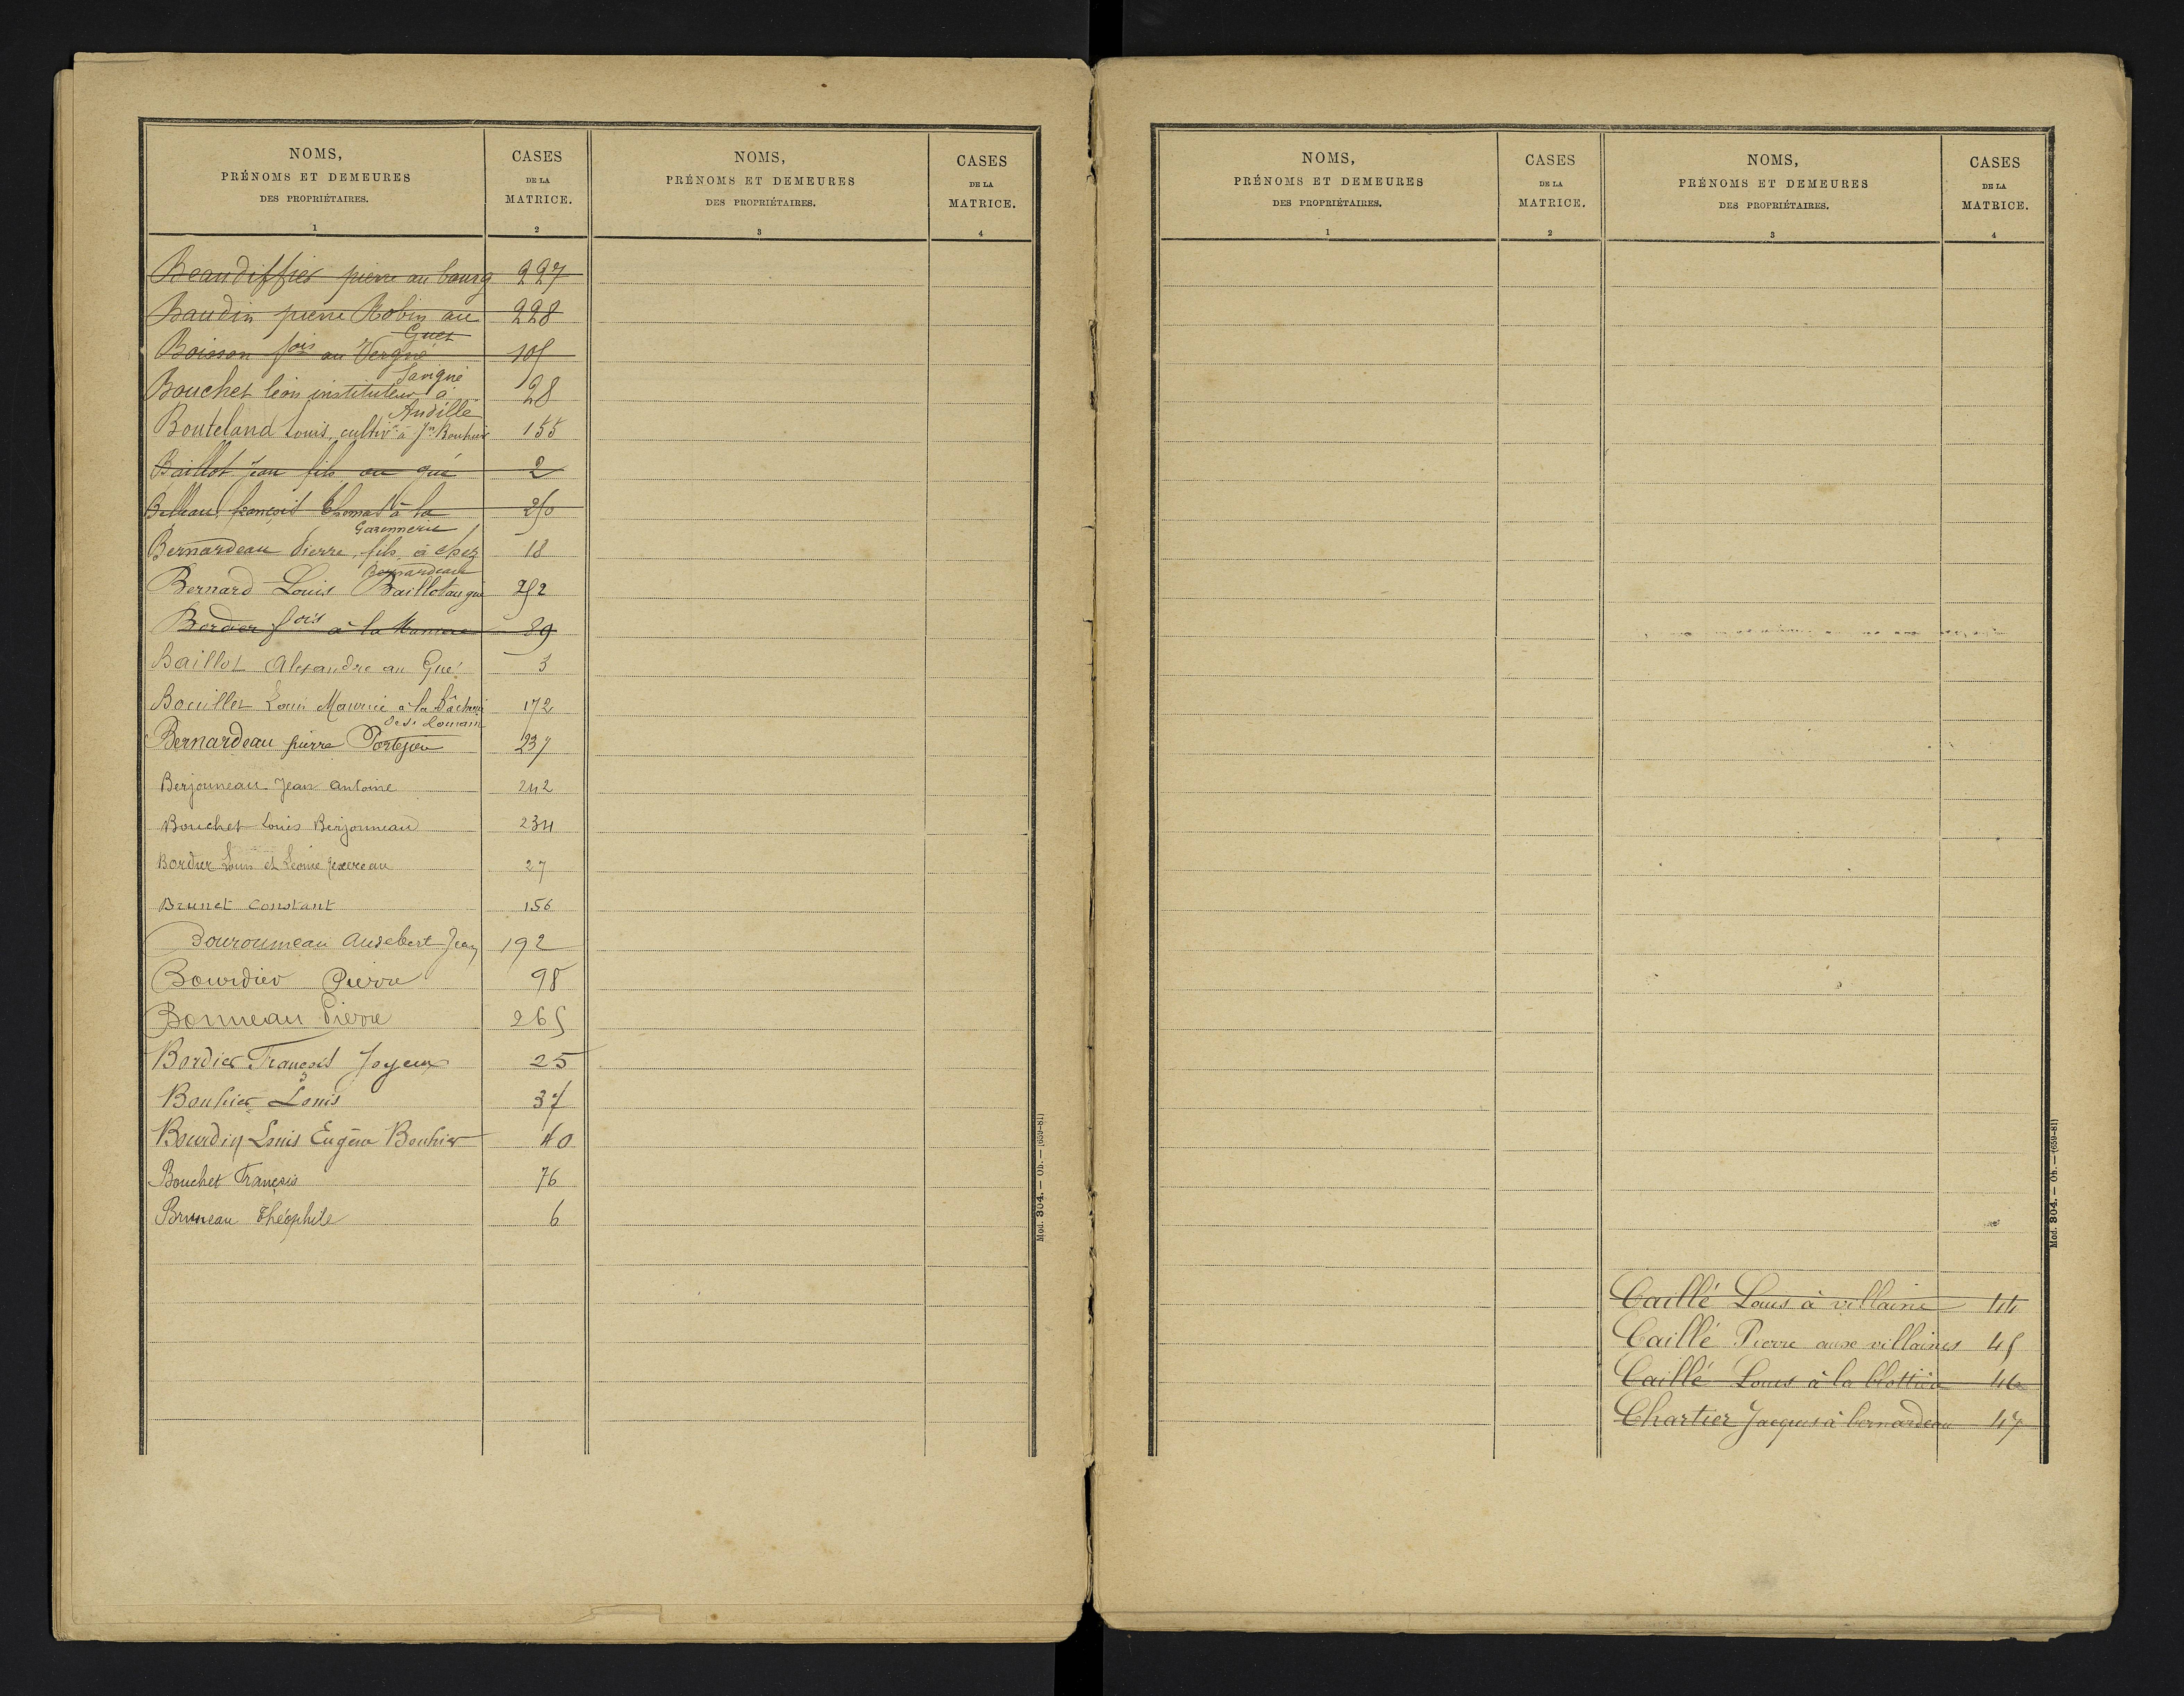 NOMS,
PRÉNOMS ET DEMEURES
DES PROPRIÉTAIRES.
1
CASES
DE LA
MATRICE.
2
NOMS,
PRÉNOMS ET DEMEURES
DES PROPRIÉTAIRES.
3
CASES
DE LA
MATRICE.
4
Beaudiffier pierre au bourg 227
Baudin pierre Robin au Guet 228
Boisson fois au Vergné 105
Bouchet léon instituteur à Savigné 28
Bouteland Louis, cultivr à Andillé 155
Baillot Jean fils au gué 2
Belleau françois Thomas à la Garennerie 250
Bernardeau Pierre, fils, à chez Bernardeau 18
Bernard Louis Baillot au gué 252
Bordier fois à la 89
Baillot Alexandre au Gué 3
Bouillet Louis Maurice à la de St Romain 172
Bernardeau pierre Portejoie 237
Berjonneau Jean Antoine 242
Bouchet Louis Berjonneau 234
Bordier Louis et Léonie 27
Brunet Constant 156
Bouroumeau Audebert Jean 192
Bourdier Pierre 98
Bonneau Pierre 265
Bordier François Joyeux 25
Bouhier Louis 37
Bourdin Louis Eugène Bouhier 40
Bouchet François 76
Bruneau Théophile 6
Mod. 304. — Ob. — (659-81)
NOMS,
PRÉNOMS ET DEMEURES
DES PROPRIÉTAIRES.
1
CASES
DE LA
MATRICE.
2
NOMS,
PRÉNOMS ET DEMEURES
DES PROPRIÉTAIRES.
3
CASES
DE LA
MATRICE.
4
Caillé Louis à villaine 44
Caillé Pierre aux villaines 45
Caillé Louis à la blottière 46
Chartier Jacques à bernardeau 47
Mod. 304. — Ob. — (659-81)